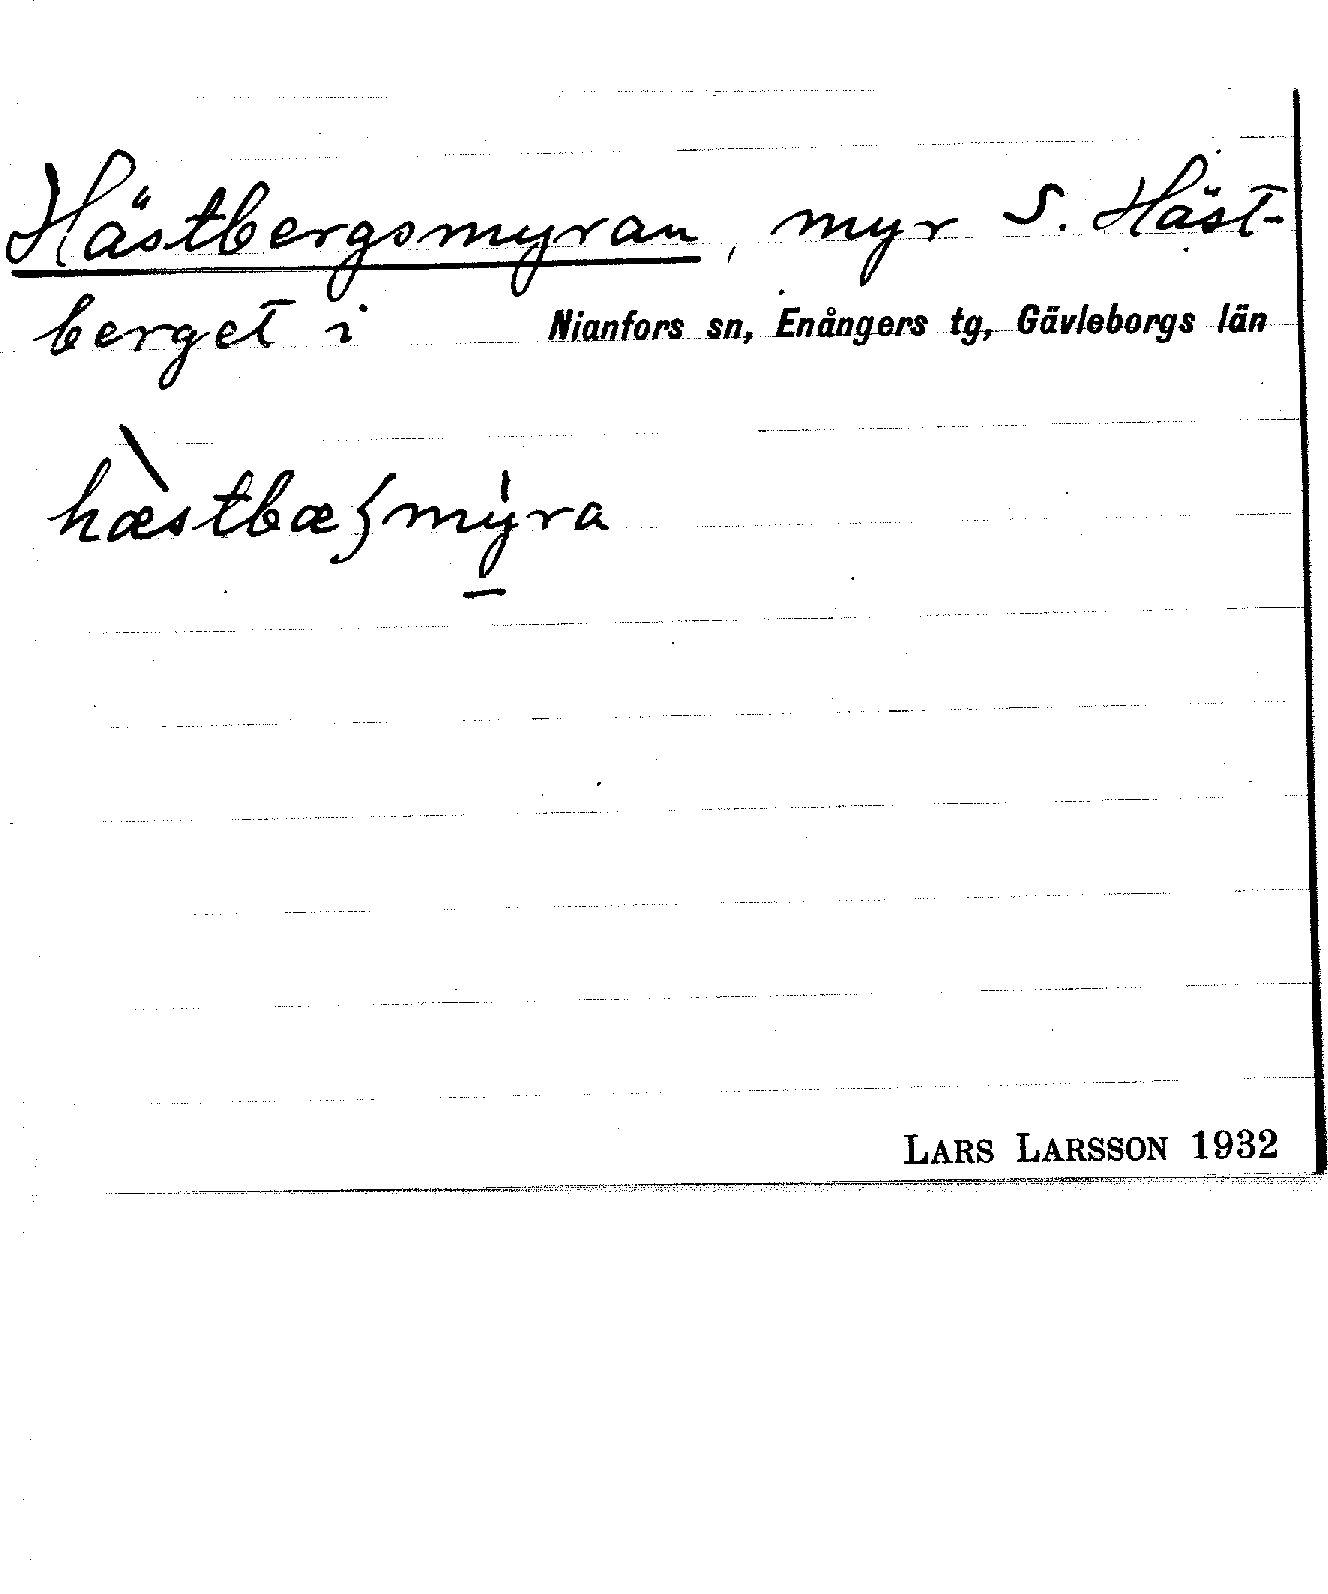 Hästbergsmyran, myr S. Häst-
berget i Nianfors sn, Enångers tg, Gävleborgs län
hæ̀stbæʃmy̱̍ra
LARS LARSSON 1932